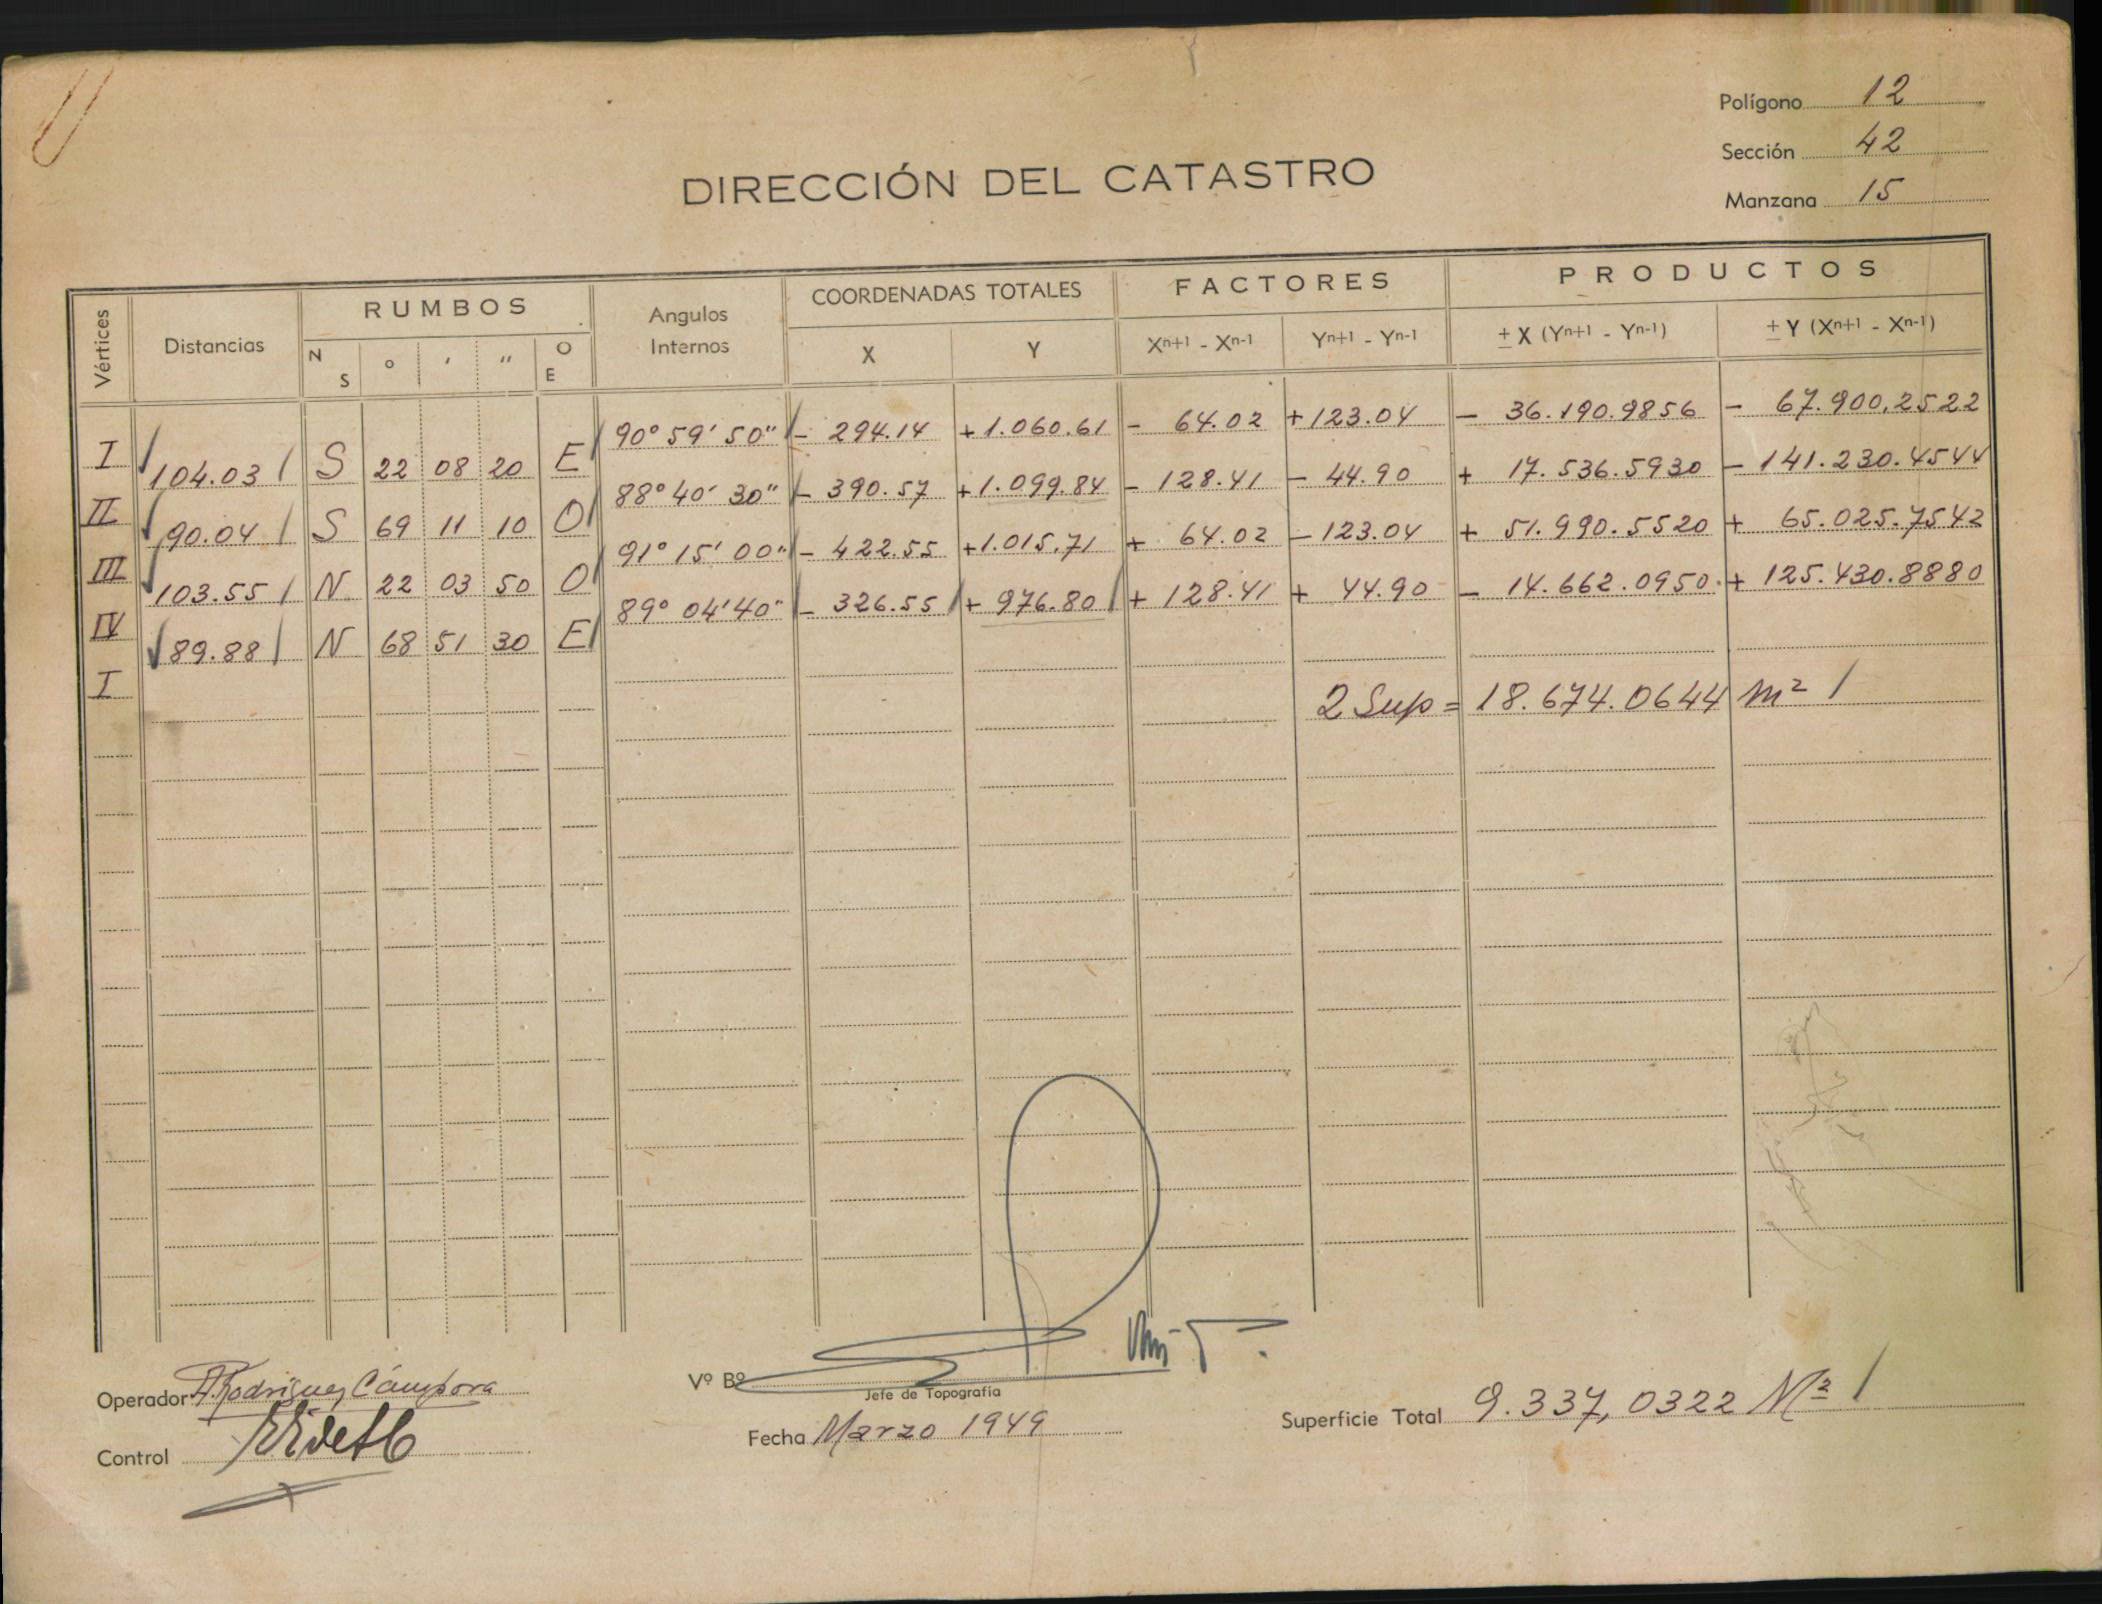 Polígono 12
Sección 42
Manzana 15
DIRECCIÓN DEL CATASTRO
Vértices Distancias RUMBOS Angulos Internos COORDENADAS TOTALES FACTORES PRODUCTOS
N S ° ′ ″ O E X Y Xn+1 - Xn-1 Yn+1 - Yn-1 ± X (Yn+1 - Yn-1) ± Y (Xn+1 - Xn-1)
90° 59' 50" - 294.14 +1.060.61 - 64.02 +123.04 - 36.190.9856 - 67.900,2522
I 104.03 S 22 08 20 E
88° 40' 30" - 390.57 +1.099.84 - 128.41 - 44.90 + 17.536.5930 - 141.230.4544
II 90.04 S 69 11 10 O
91° 15' 00" - 422.55 +1.015.71 + 64.02 - 123.04 + 51.990.5520 + 65.025.7542
III 103.55 N 22 03 50 O
89° 04' 40" - 326.55 + 976.80 + 128.41 + 44.90 - 14.662.0950 + 125.430.8880
IV 89.88 N 68 51 30 E
I
2 Sup = 18.674.0644 m²
Operador A. Rodriguez Cámpora
Vº Bº
Jefe de Topografía
Superficie Total 9.337,0322 M²
Fecha Marzo 1949
Control